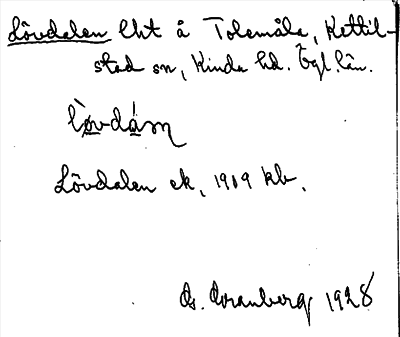 Lövdalen lht å Tolemåla, Kettil-
stad sn, Kinda hd. Ögl. län.
lø̀vdáɳ
Lövdalen ek, 1909 kb.
G. Granberg 1928